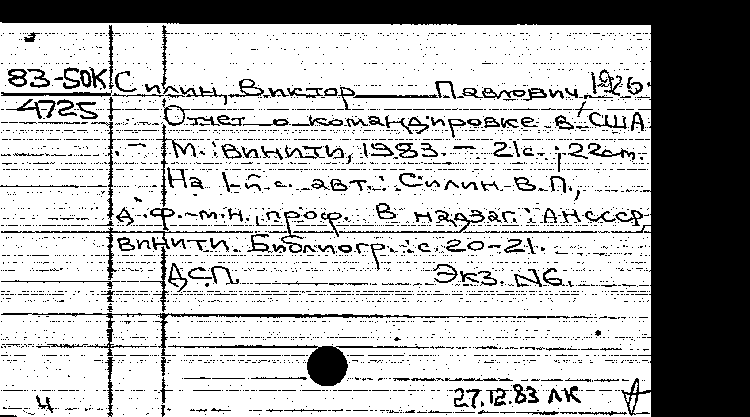 83-50К Силин, Виктор Павлович, 1926-
4725 Отчет о командировке в США
. - М.: ВИНИТИ, 1983. - 21с.; 22см.
На 1-й с. авт.: Силин В.П.,
д.ф.-м.н., проф. В надзаг.: АН СССР,
ВИНИТИ. Библиогр.: с. 20-21.
ДСП. Экз. N6.
27.12.83 ЛК
ч